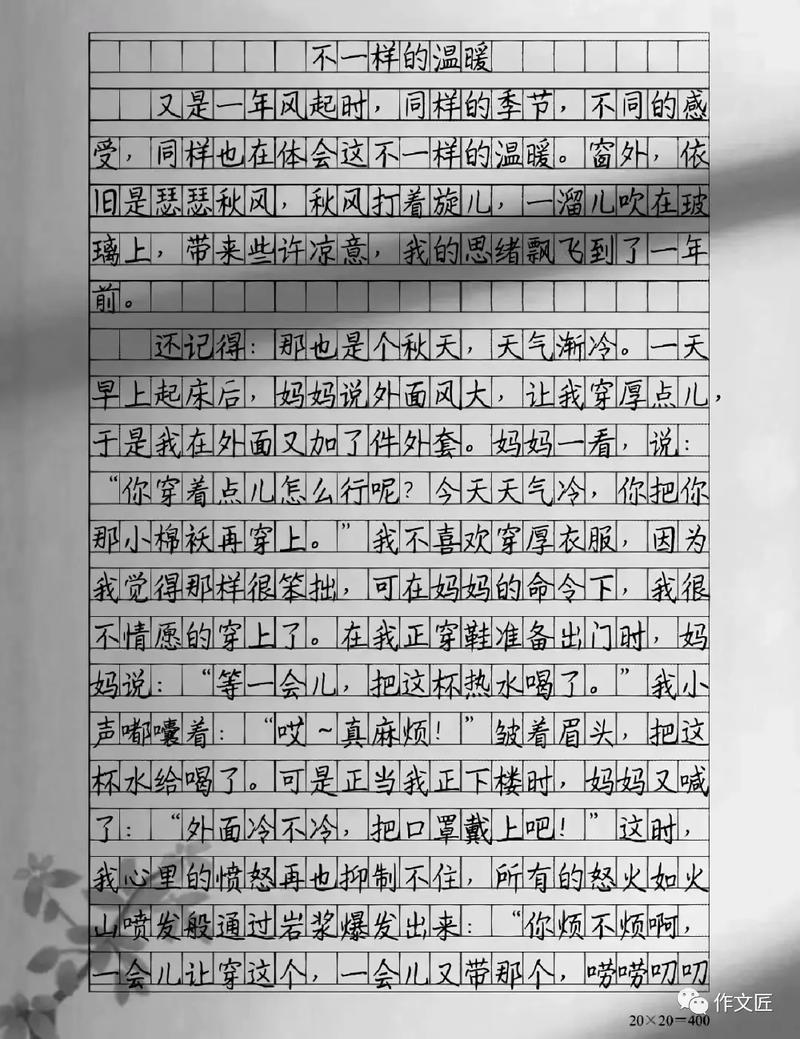 不一样的温暖
又是一年风起时，同样的季节，不同的感
受，同样也在体会这不一样的温暖。窗外，依
旧是瑟瑟秋风，秋风打着旋儿，一溜儿吹在玻
璃上，带来些许凉意，我的思绪飘飞到了一年
前。
还记得：那也是个秋天，天气渐冷。一天
早上起床后，妈妈说外面风大，让我穿厚点儿，
于是我在外面又加了件外套。妈妈一看，说：
“你穿着点儿怎么行呢？今天天气冷，你把你
那小棉袄再穿上。”我不喜欢穿厚衣服，因为
我觉得那样很笨拙，可在妈妈的命令下，我很
不情愿的穿上了。在我正穿鞋准备出门时，妈
妈说：“等一会儿，把这杯热水喝了。”我小
声嘟囔着：“哎~真麻烦！”皱着眉头，把这
杯水给喝了。可是正当我正下楼时，妈妈又喊
了：“外面冷不冷，把口罩戴上吧！”这时，
我心里的愤怒再也抑制不住，所有的怒火如火
山喷发般通过岩浆爆发出来：“你烦不烦啊，
一会儿让穿这个，一会儿又带那个，唠唠叨叨
20×20=400
作文匠